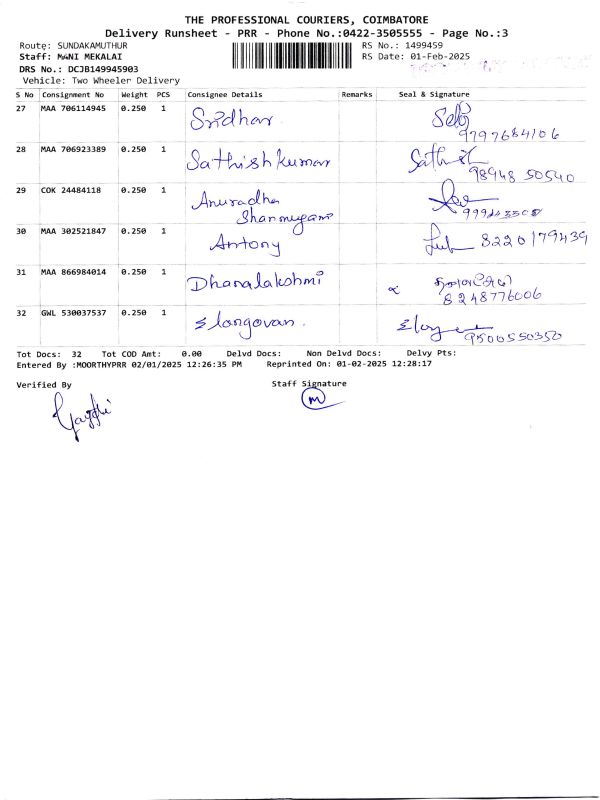 THE PROFESSIONAL COURIERS, COIMBATORE
Delivery Runsheet - PRR - Phone No.:0422-3505555 - Page No.:3
Route: SUNDAKAMUTHUR RS No.: 1499459
Staff: MANI MEKALAI RS Date: 01-Feb-2025
DRS No.: DCJB149945903
Vehicle: Two Wheeler Delivery
S No Consignment No Weight PCS Consignee Details Remarks Seal & Signature
27 MAA 706114945 0.250 1 Sridhar
9797684106
28 MAA 706923389 0.250 1 Sathishkumar Sathish
98948 50540
29 COK 24484118 0.250 1 Anuradha
Shanmugam
30 MAA 302521847 0.250 1 Antony 8220179439
31 MAA 866984014 0.250 1 Dhanalakshmi
8248776006
32 GWL 530037537 0.250 1 Elangovan.
9500550350
Tot Docs: 32 Tot COD Amt: 0.00 Delvd Docs: Non Delvd Docs: Delvy Pts:
Entered By :MOORTHYPRR 02/01/2025 12:26:35 PM Reprinted On: 01-02-2025 12:28:17
Verified By Staff Signature
m